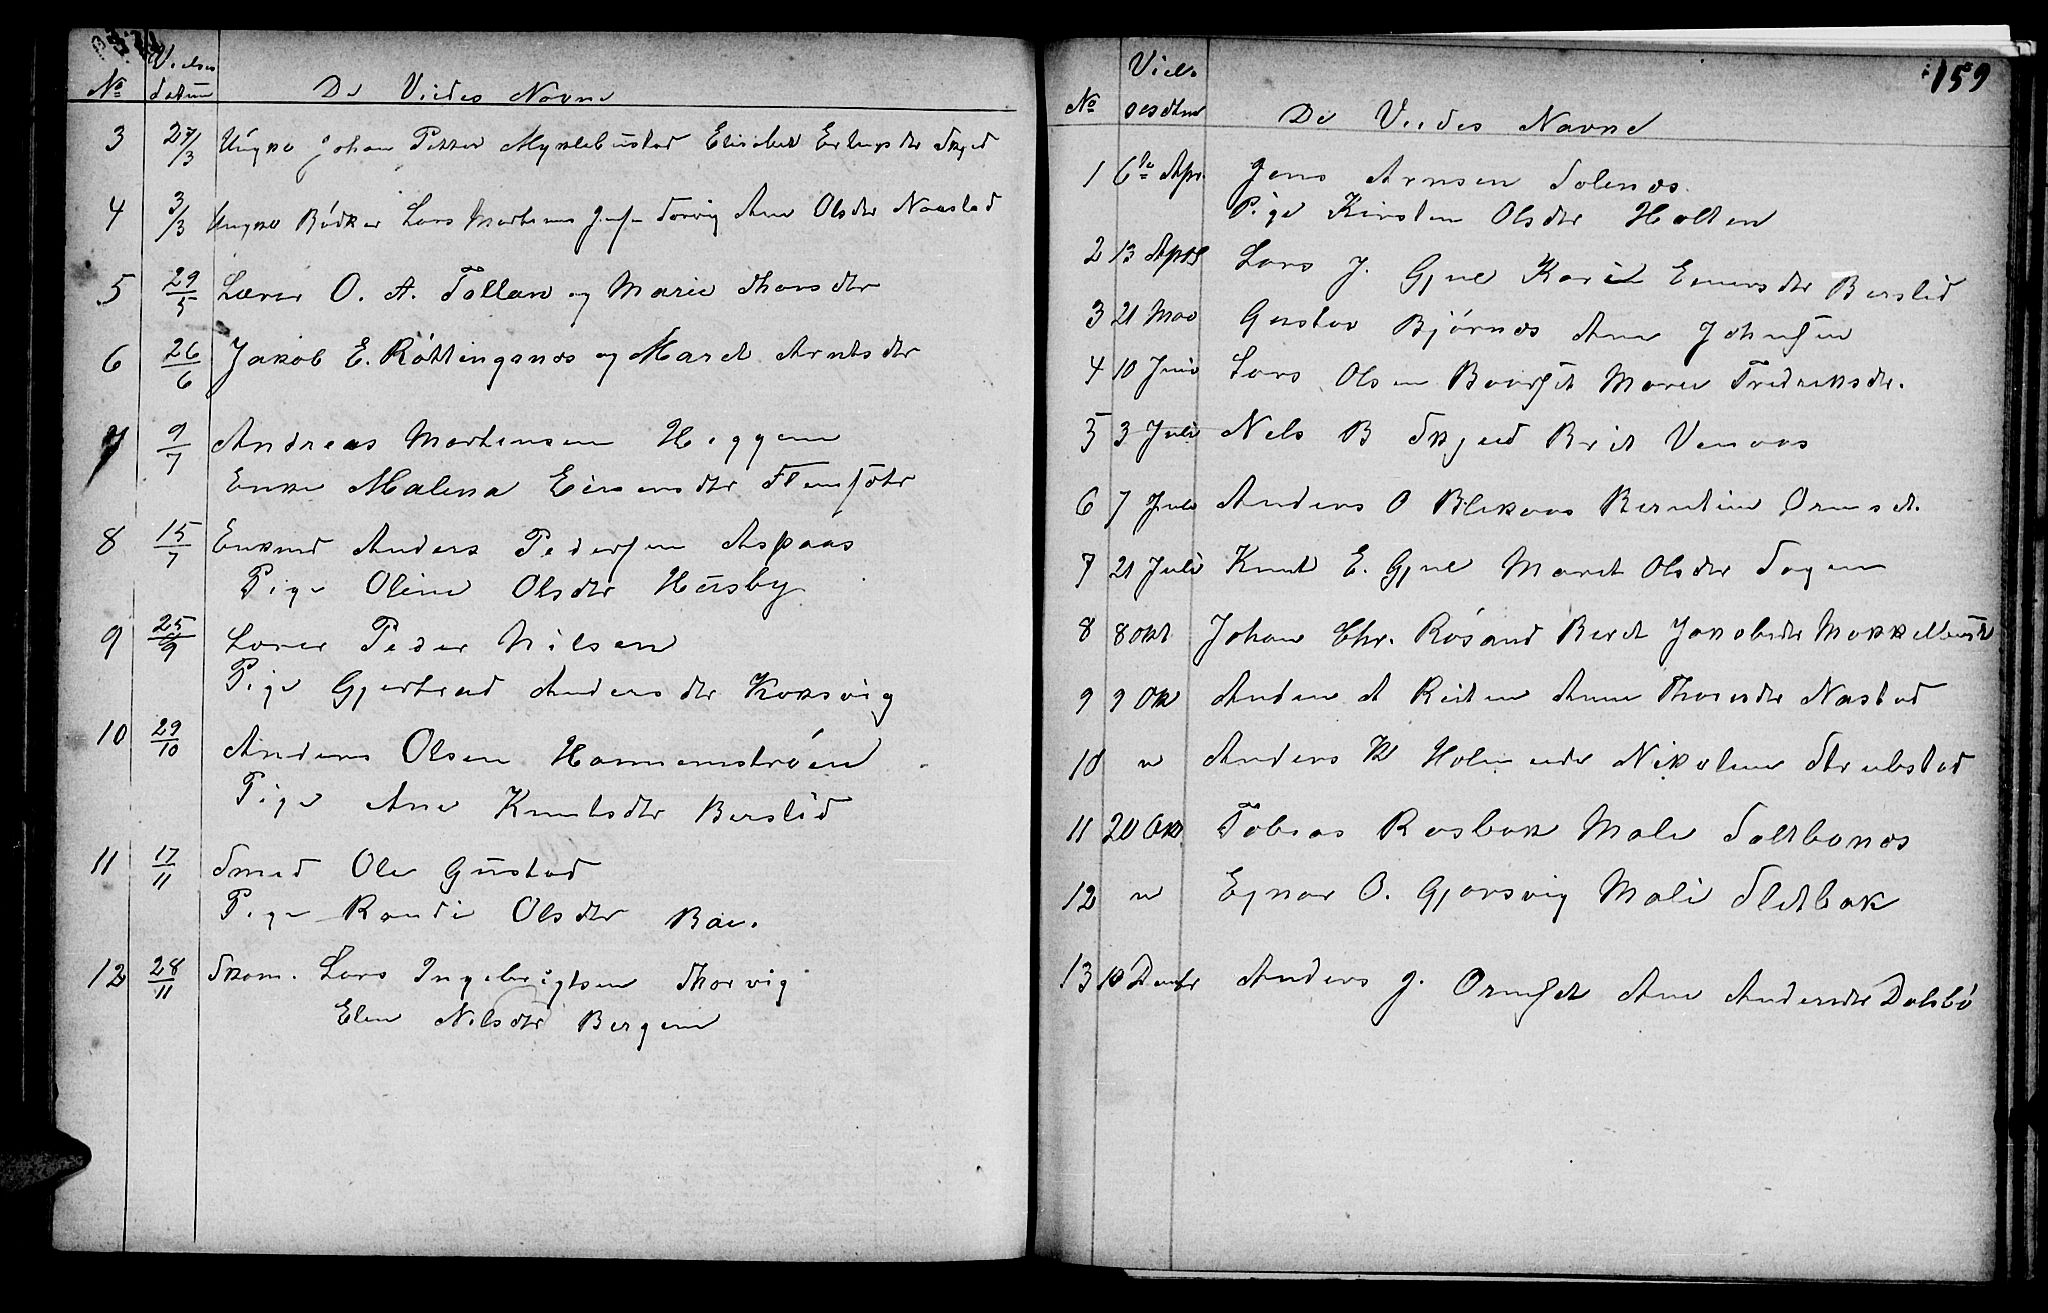 Vielses
No datum De Viedes Navne
3 27/3 Ungkr Johan Petter Myklebustad Elisabet Erlingsdtr Skjed
4 3/3 Ungkr Bödker Lars Mortens Torvig Ane Olsdtr Naastad
5 29/5 Lærer O. A. Tollan og Marie Hansdtr
6 26/6 Jakob E. Röttingsnæs og Maret Arntsdtr
7 9/7 Andreas Mortensen Heggem
Enke Malena Eineresdtr
8 15/7 Enkmd Anders Pedersen Aspaas
Pige Oline Olsdtr Húsby
9 25/9 Lærer Peder Nilsen
Pige Gjertrud Andersdtr Korsvig
10 29/10 Anders Olsen Hammerströen
Pige Ane Knutsdtr Berslid
11 17/11 Smed Ole Gústad
Pige Randi Olsdtr Bae.
12 28/11 Skom. Lars Ingebrigtsen Thorvig
Elen Nilsdtr Bergem
159
Viel-
No sesdtm De Viedes Navne
1 6te Apr. Jens Arnsen Solenæs.
Pige Kirsten Olsdtr Holten
2 13 April Lars J. Gjul Karie Einersdtr Berslid
3 21 Mai Gustav Bjørnæs Ane Johnsen
4 10 Juni Lars Olsen Baarset Maree Fredriksdr.
5 3 Juli Nels B Skjed Brit Venaas
6 7 Juli Anders O Blekaas Berntine Ornsdt.
7 21 Juli Knut E. Gjul Maret Olsdtr Sogen
8 8 Okt Johan Chr. Rösand Beret Jakobsdtr Mokkelbust
9 9 Ok Anders A Reiten Anne Thoresdtr Nastad
10 " Anders K Nikoline Strubstad
11 20 Okt. Tobias Rosbak Mali Saltbones
12 " Egnar O. Gjorsvig Mali Sletbak
13 10 Dember Anders J. Ornset Ane Andersdtr Dalsbö